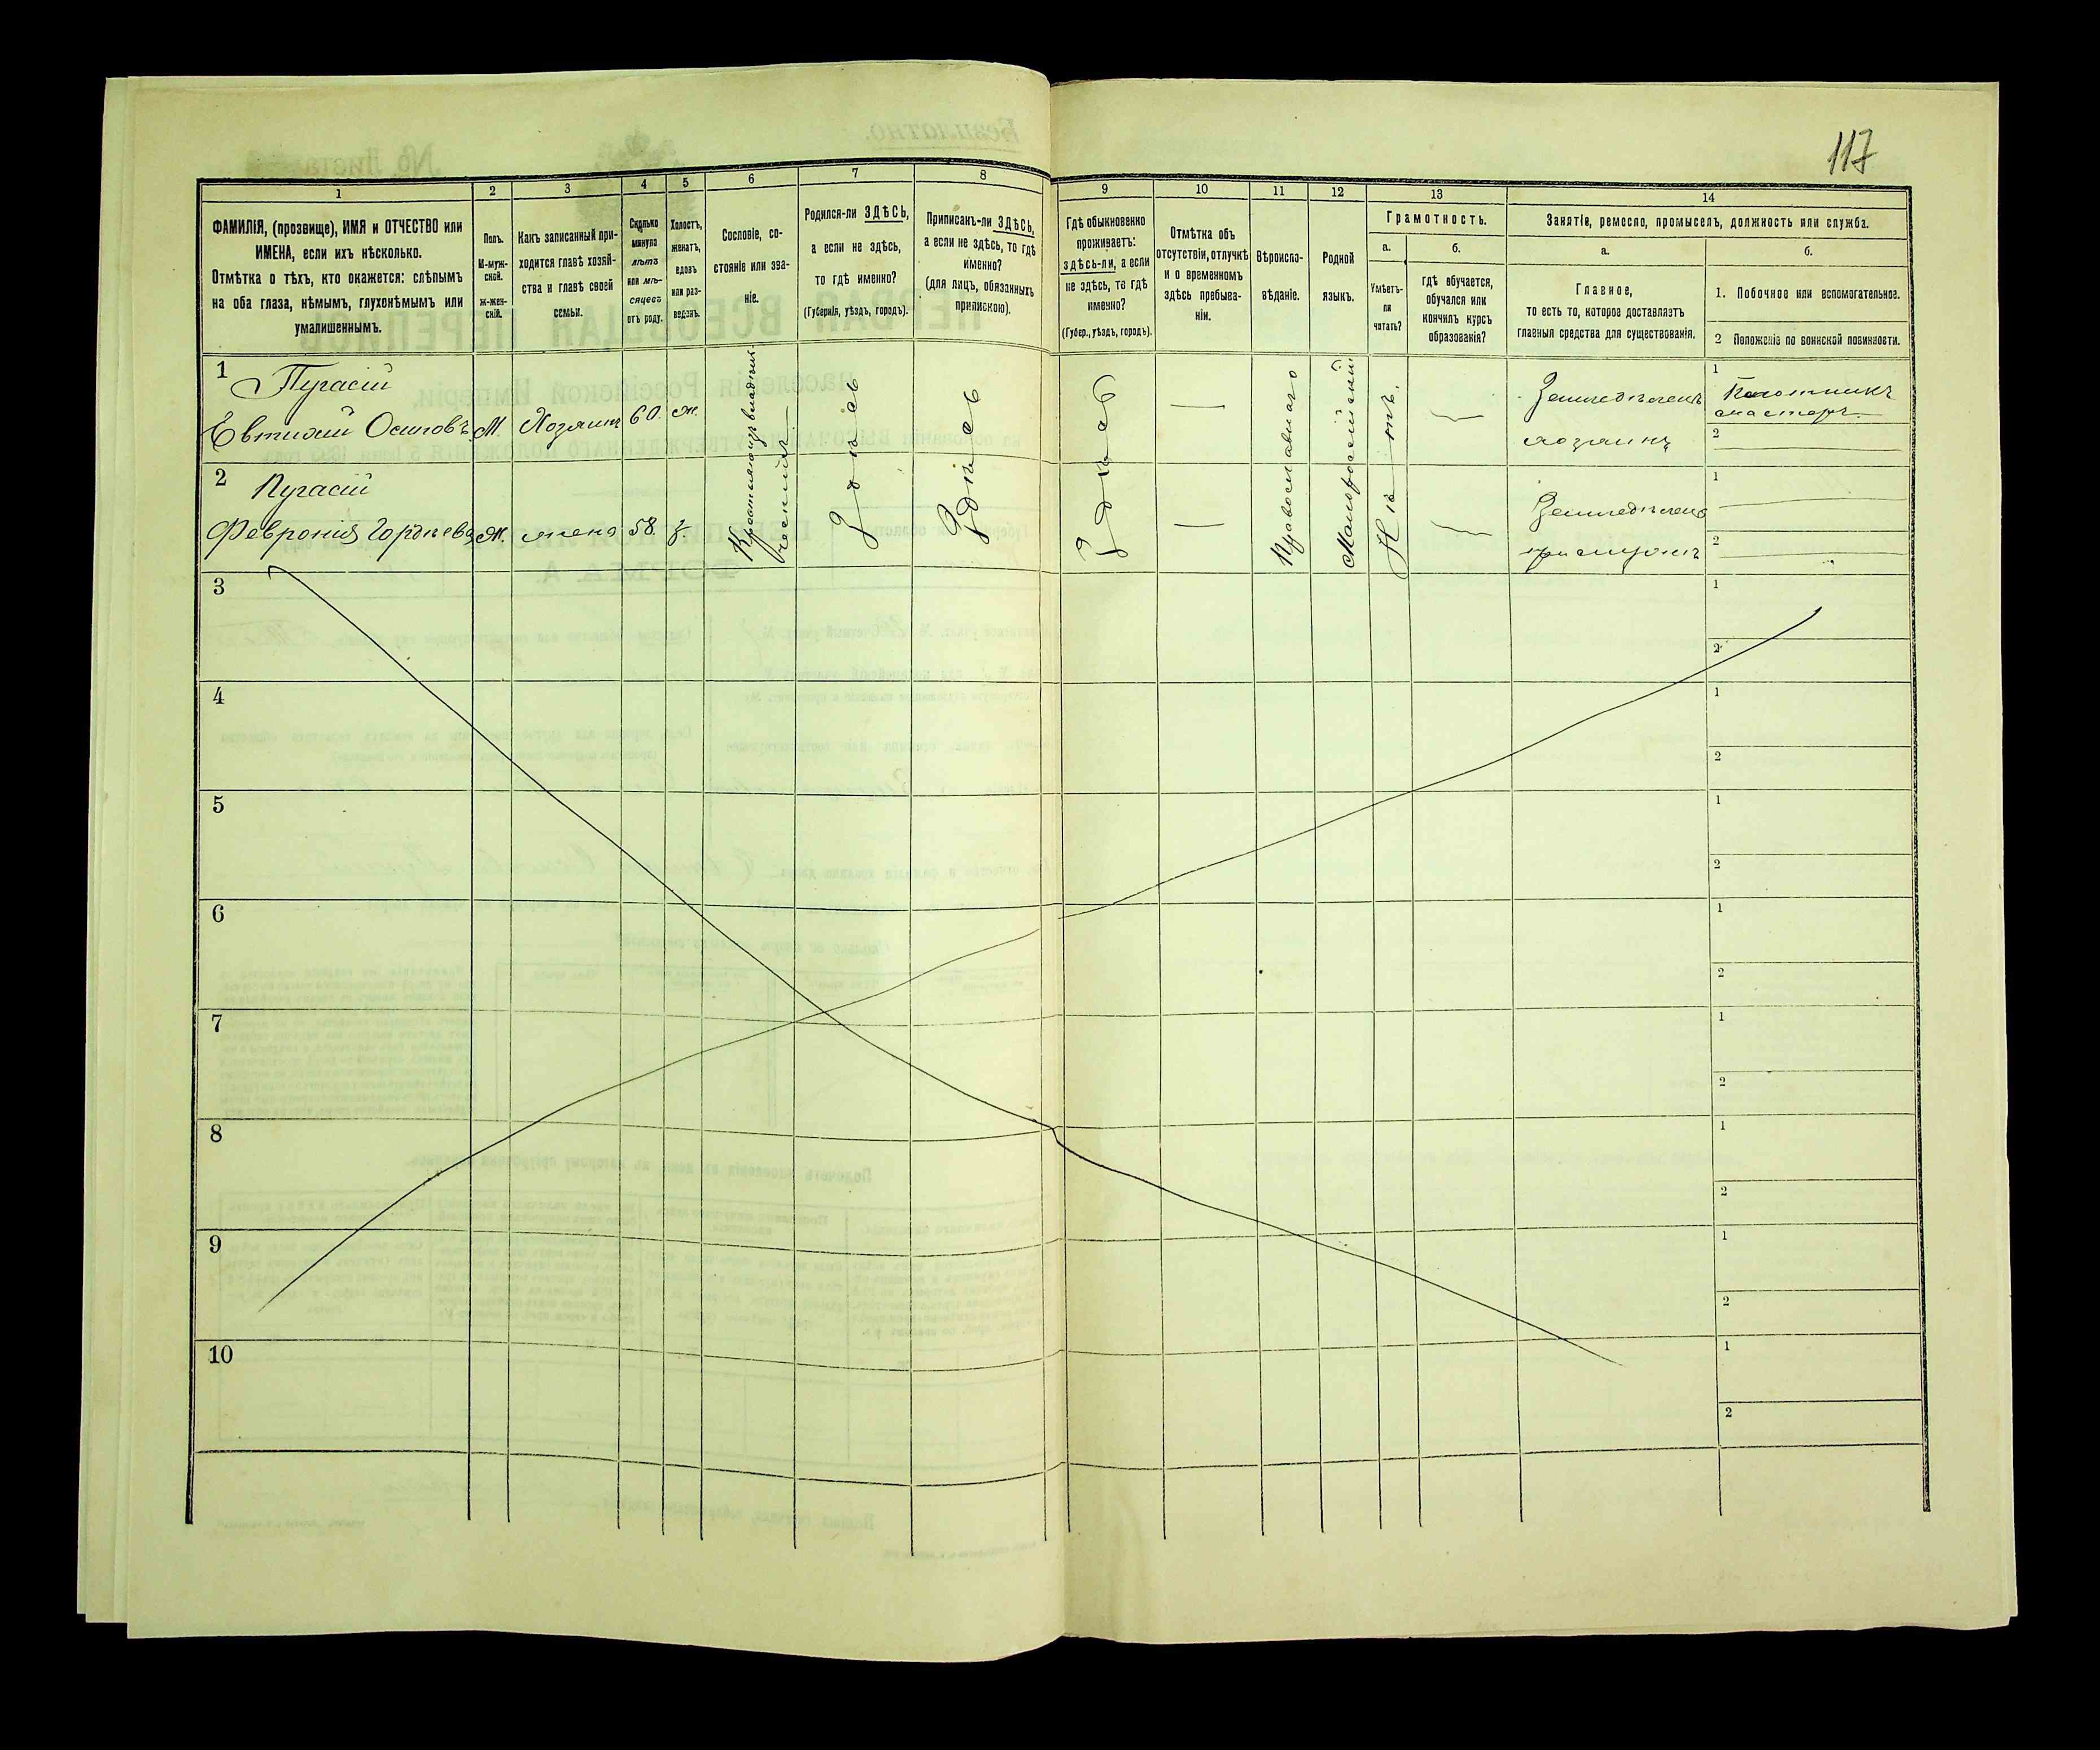 117
1
2
3
4
5
6
7
8
9
10
11
12
13
14
ФАМИЛІЯ, (прозвище), ИМЯ и ОТЧЕСТВО или
ИМЕНА, если ихъ нѣсколько.
Отмѣтка о тѣхъ, кто окажется: слѣпымъ
на оба глаза, нѣмымъ, глухонѣмымъ или
умалишеннымъ.
Полъ.
М-муж-
ской.
Ж-жен-
скій.
Какъ записанный при-
ходится главѣ хозяй-
ства и главѣ своей
семьи.
Сколько
минуло
лѣтъ
или мѣ-
сяцевъ
отъ роду.
Холостъ,
женатъ,
вдовъ
или раз-
веденъ.
Сословіе, со-
стояніе или зва-
ніе.
Родился-ли ЗДѢСЬ,
а если не здѣсь,
то гдѣ именно?
(Губернія, уѣздъ, городъ).
Приписанъ-ли ЗДѢСЬ,
а если не здѣсь, то гдѣ
именно?
(для лицъ, обязанныхъ
припискою).
Гдѣ обыкновенно
проживаетъ:
здѣсь-ли, а если
не здѣсь, то гдѣ
именно?
(Губер., уѣздъ, городъ).
Отмѣтка объ
отсутствіи, отлучкѣ
и о временномъ
здѣсь пребыва-
ніи.
Вѣроиспо-
вѣданіе.
Родной
языкъ.
Грамотность.
а.
б.
Умѣетъ-
ли
читать?
гдѣ обучается,
обучался или
кончилъ курсъ
образованія?
Занятіе, ремесло, промыселъ, должность или служба.
а.
б.
Главное,
то есть то, которое доставляетъ
главныя средства для существованія.
1. Побочное или вспомогательное.
2 Положеніе по воинской повинности.
1
Пугасій
Евтихій Осиповъ
М.
Хозяинъ
60.
ж.
Здѣсь
Здѣсь
Здѣсь
—
Православнаго
Малороссійскій
Нѣтъ.
Земледѣлецъ
хозяинъ
1
мастеръ
2
2
Пугасій
Февронія Гордѣева
Ж.
жена
58.
з.
—
Земледѣліе
1
2
3
1
2
4
1
2
5
1
2
6
1
2
7
1
2
8
1
2
9
1
2
10
1
2